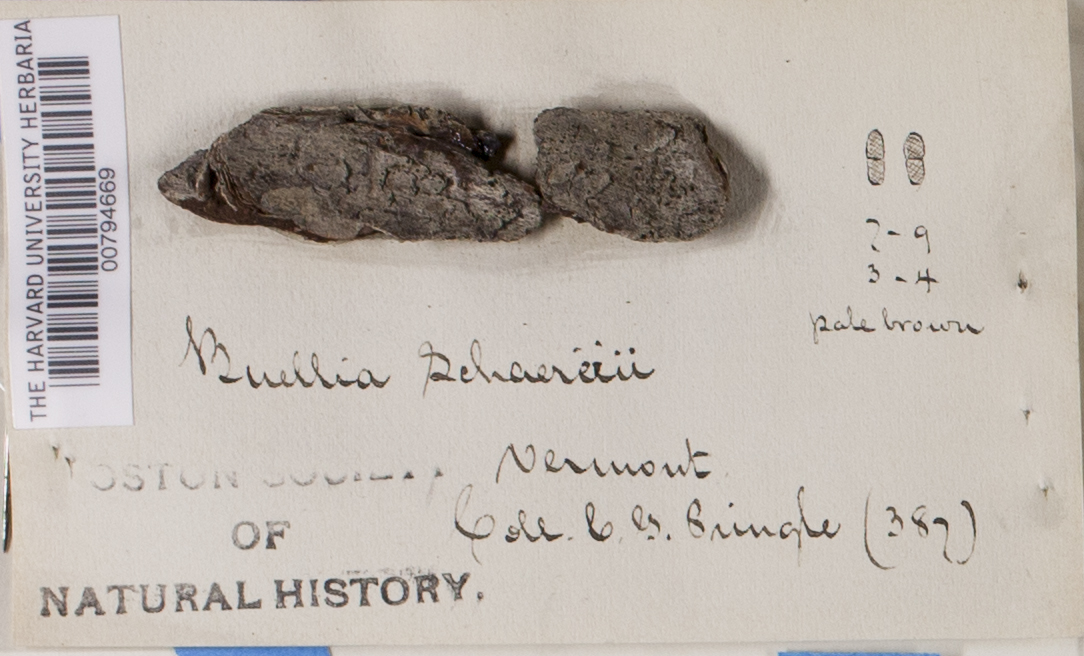 THE HARVARD UNIVERSITY HERBARIA
00794669
7-9
3-4
pale brown
Buellia Schaereii
Vermont
Coll. C. G. Pringle (387)
BOSTON SOCIETY
OF
NATURAL HISTORY.